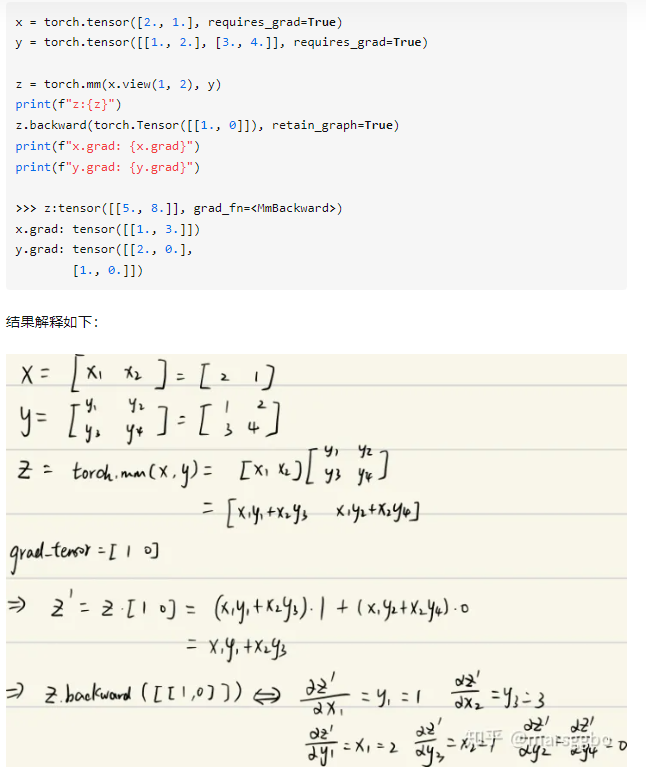 x = torch.tensor([2., 1.], requires_grad=True)
y = torch.tensor([[1., 2.], [3., 4.]], requires_grad=True)
z = torch.mm(x.view(1, 2), y)
print(f"z:{z}")
z.backward(torch.Tensor([[1., 0]]), retain_graph=True)
print(f"x.grad: {x.grad}")
print(f"y.grad: {y.grad}")
>>> z:tensor([[5., 8.]], grad_fn=<MmBackward>)
x.grad: tensor([[1., 3.]])
y.grad: tensor([[2., 0.],
[1., 0.]])
结果解释如下：
X = [x₁ x₂] = [2 1]
y = [y₁ y₂ y₃ y₄] = [1 2 3 4]
Z = torch.mm(x,y) = [x₁ x₂][y₁ y₂ y₃ y₄]
= [x₁y₁+x₂y₃ x₁y₂+x₂y₄]
grad_tensor = [1 0]
⇒ z' = z·[1 0] = (x₁y₁+x₂y₃)·1 + (x₁y₂+x₂y₄)·0
= x₁y₁+x₂y₃
⇒ z.backward([[1,0]]) ⇔ ∂z'/∂x₁ = y₁ = 1 ∂z'/∂x₂ = y₃ = 3
∂z'/∂y₁ = x₁ = 2 ∂z'/∂y₃ = x₂ = 1 ∂z'/∂y₂ = ∂z'/∂y₄ = 0
知乎 @marsggbo